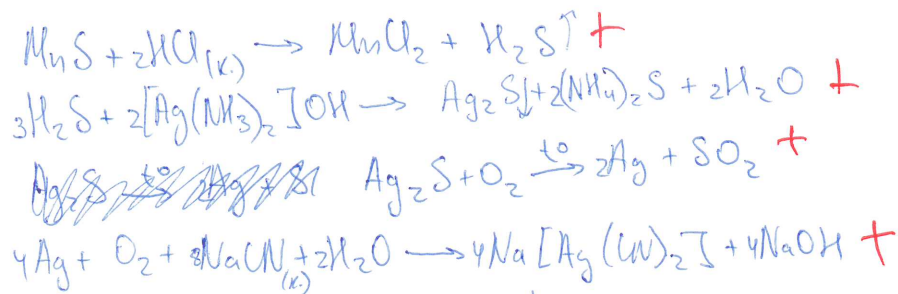 MnS + 2HCl(к.) → MnCl₂ + H₂S↑ +
3H₂S + 2[Ag(NH₃)₂]OH → Ag₂S↓ + 2(NH₄)₂S + 2H₂O +
Ag₂S + O₂ →t° 2Ag + SO₂ +
4Ag + O₂ + 8NaCN(к.) + 2H₂O → 4Na[Ag(CN)₂] + 4NaOH +